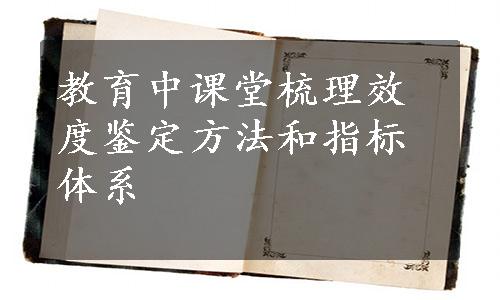 教育中课堂梳理效
度鉴定方法和指标
体系